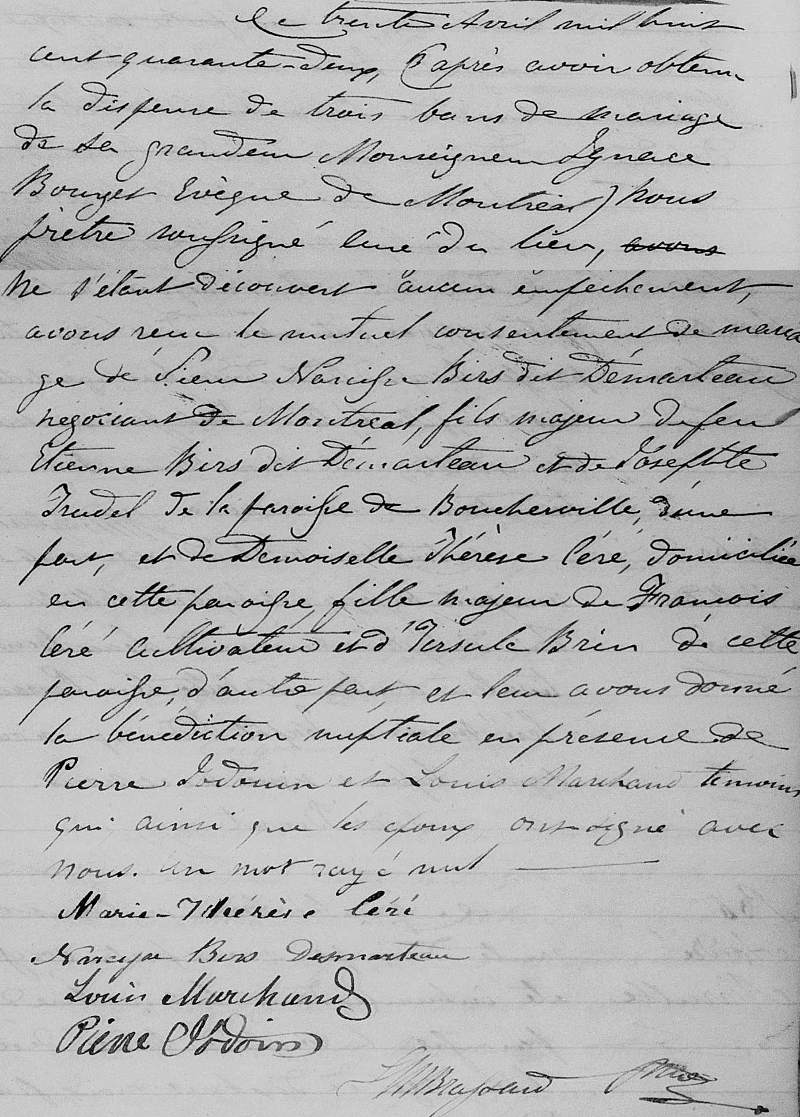 Le trente Avril mil huit
cent quarante-deux, (après avoir obtenu
la dispense de trois bans de mariage
de sa grandeur Monseigneur Ignace
Bourget Evèque de Montréal) nous
prêtre soussigné curé du lieu, avons
ne s'étant découvert aucun empêchement,
avons reçu le mutuel consentement de maria
ge de Sieur Narcisse Birs dit Démarteau
négociant de Montréal, fils majeur de feu
Etienne Birs dit Démarteau et de Josephte
Trudel de la paroisse de Boucherville, d'une
part, et de Demoiselle Thérèse Céré, domiciliée
en cette paroisse, fille majeur de François
Céré cultivateur et d'Ursule Brin de cette
paroisse, d'autre part, et leur avons donné
la bénédiction nuptiale en présence de
Pierre Jodouin et Louis Marchand témoins
qui ainsi que les époux ont signé avec
nous. un mot rayé nul
Marie-Thérèse Céré
Narcisse Birs Desmarteau
Louis Marchand
Pierre Jodoin
Brassard Ptre